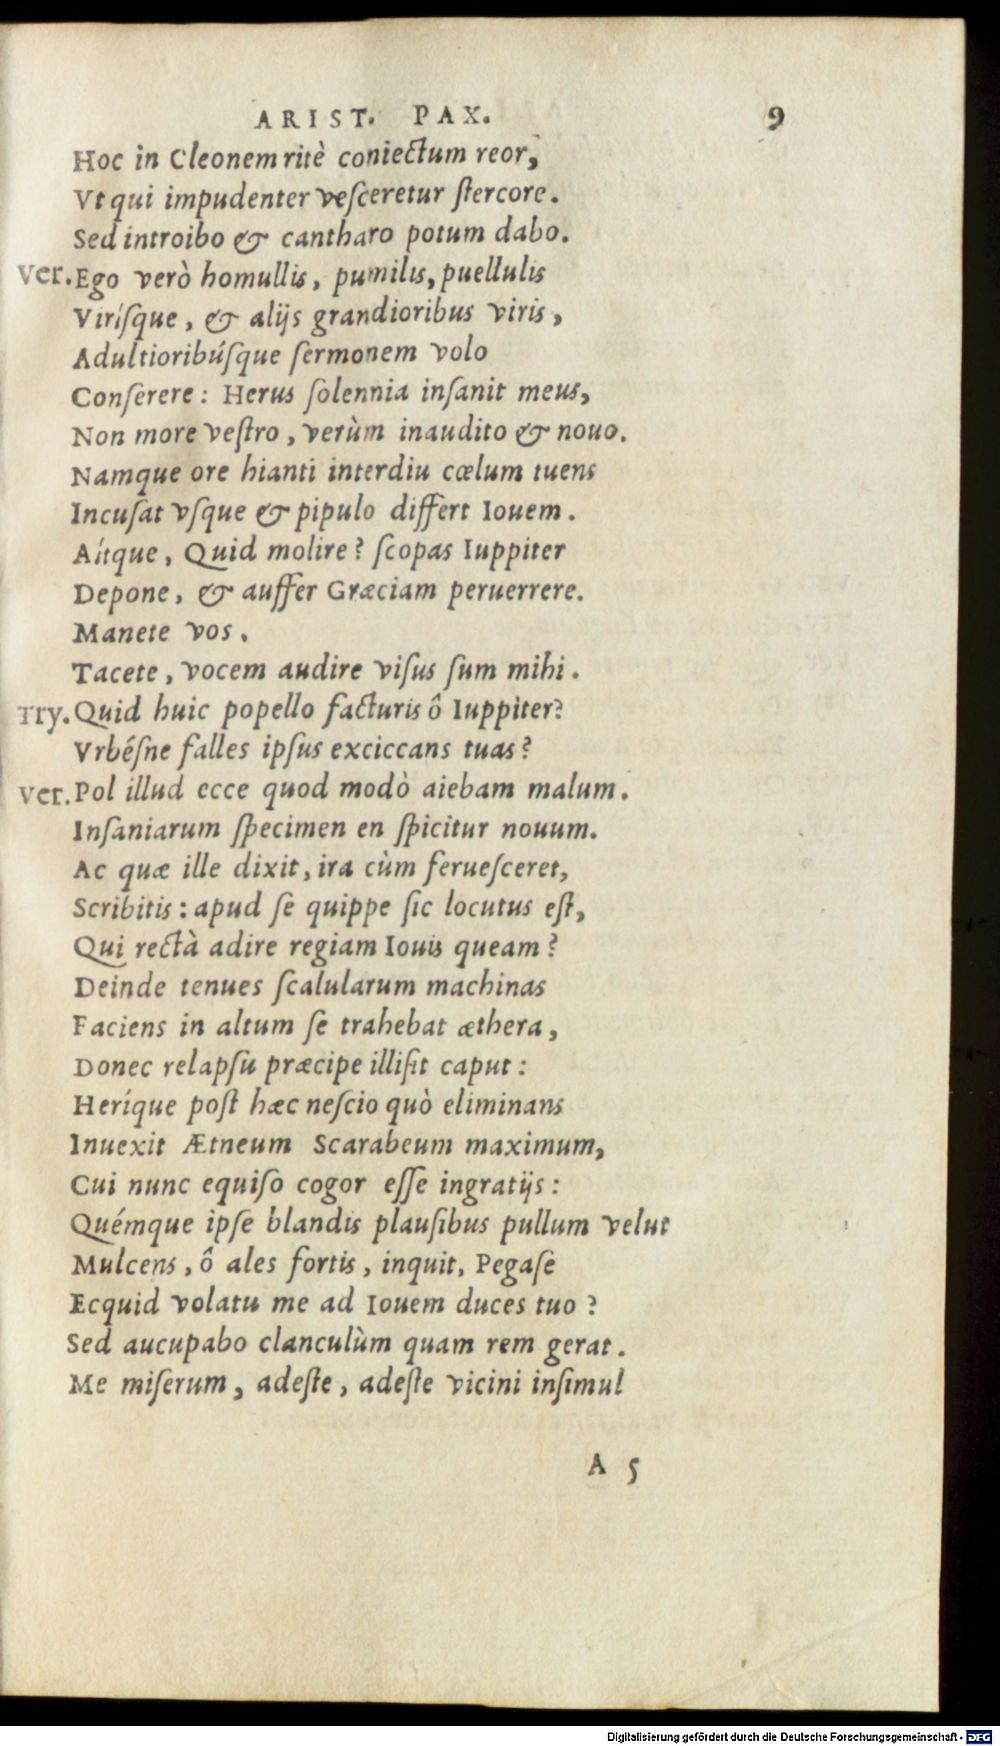 ARIST. PAX. 9
Hoc in Cleonem ritè coniectum reor,
Vt qui impudenter veſceretur ſtercore.
Sed introibo & cantharo potum dabo.
Ver. Ego verò homullis, pumilis, puellulis
Viríſque, & alijs grandioribus viris,
Adultioribúſque ſermonem volo
Conſerere: Herus ſolennia inſanit meus,
Non more veſtro, verùm inaudito & nouo.
Namque ore hianti interdiu cœlum tuens
Incuſat vſque & pipulo differt Iouem.
Aítque, Quid molire? ſcopas Iuppiter
Depone, & auffer Græciam peruerrere.
Manete vos.
Tacete, vocem audire viſus ſum mihi.
Try. Quid huic popello facturis ô Iuppiter?
Vrbéſne falles ipſus exciccans tuas?
Ver. Pol illud ecce quod modò aiebam malum.
Inſaniarum ſpecimen en ſpicitur nouum.
Ac quæ ille dixit, ira cùm ferueſceret,
Scribitis: apud ſe quippe ſic locutus eſt,
Qui rectà adire regiam Iouis queam?
Deinde tenues ſcalularum machinas
Faciens in altum ſe trahebat æthera,
Donec relapſu præcipe illiſit caput:
Heríque poſt hæc neſcio quò eliminans
Inuexit Ætneum Scarabeum maximum,
Cui nunc equiſo cogor eſſe ingratijs:
Quémque ipſe blandis plauſibus pullum velut
Mulcens, ô ales fortis, inquit, Pegaſe
Ecquid volatu me ad Iouem duces tuo?
Sed aucupabo clanculùm quam rem gerat.
Me miſerum, adeſte, adeſte vicini inſimul
A 5
Digitalisierung gefördert durch die Deutsche Forschungsgemeinschaft - DFG